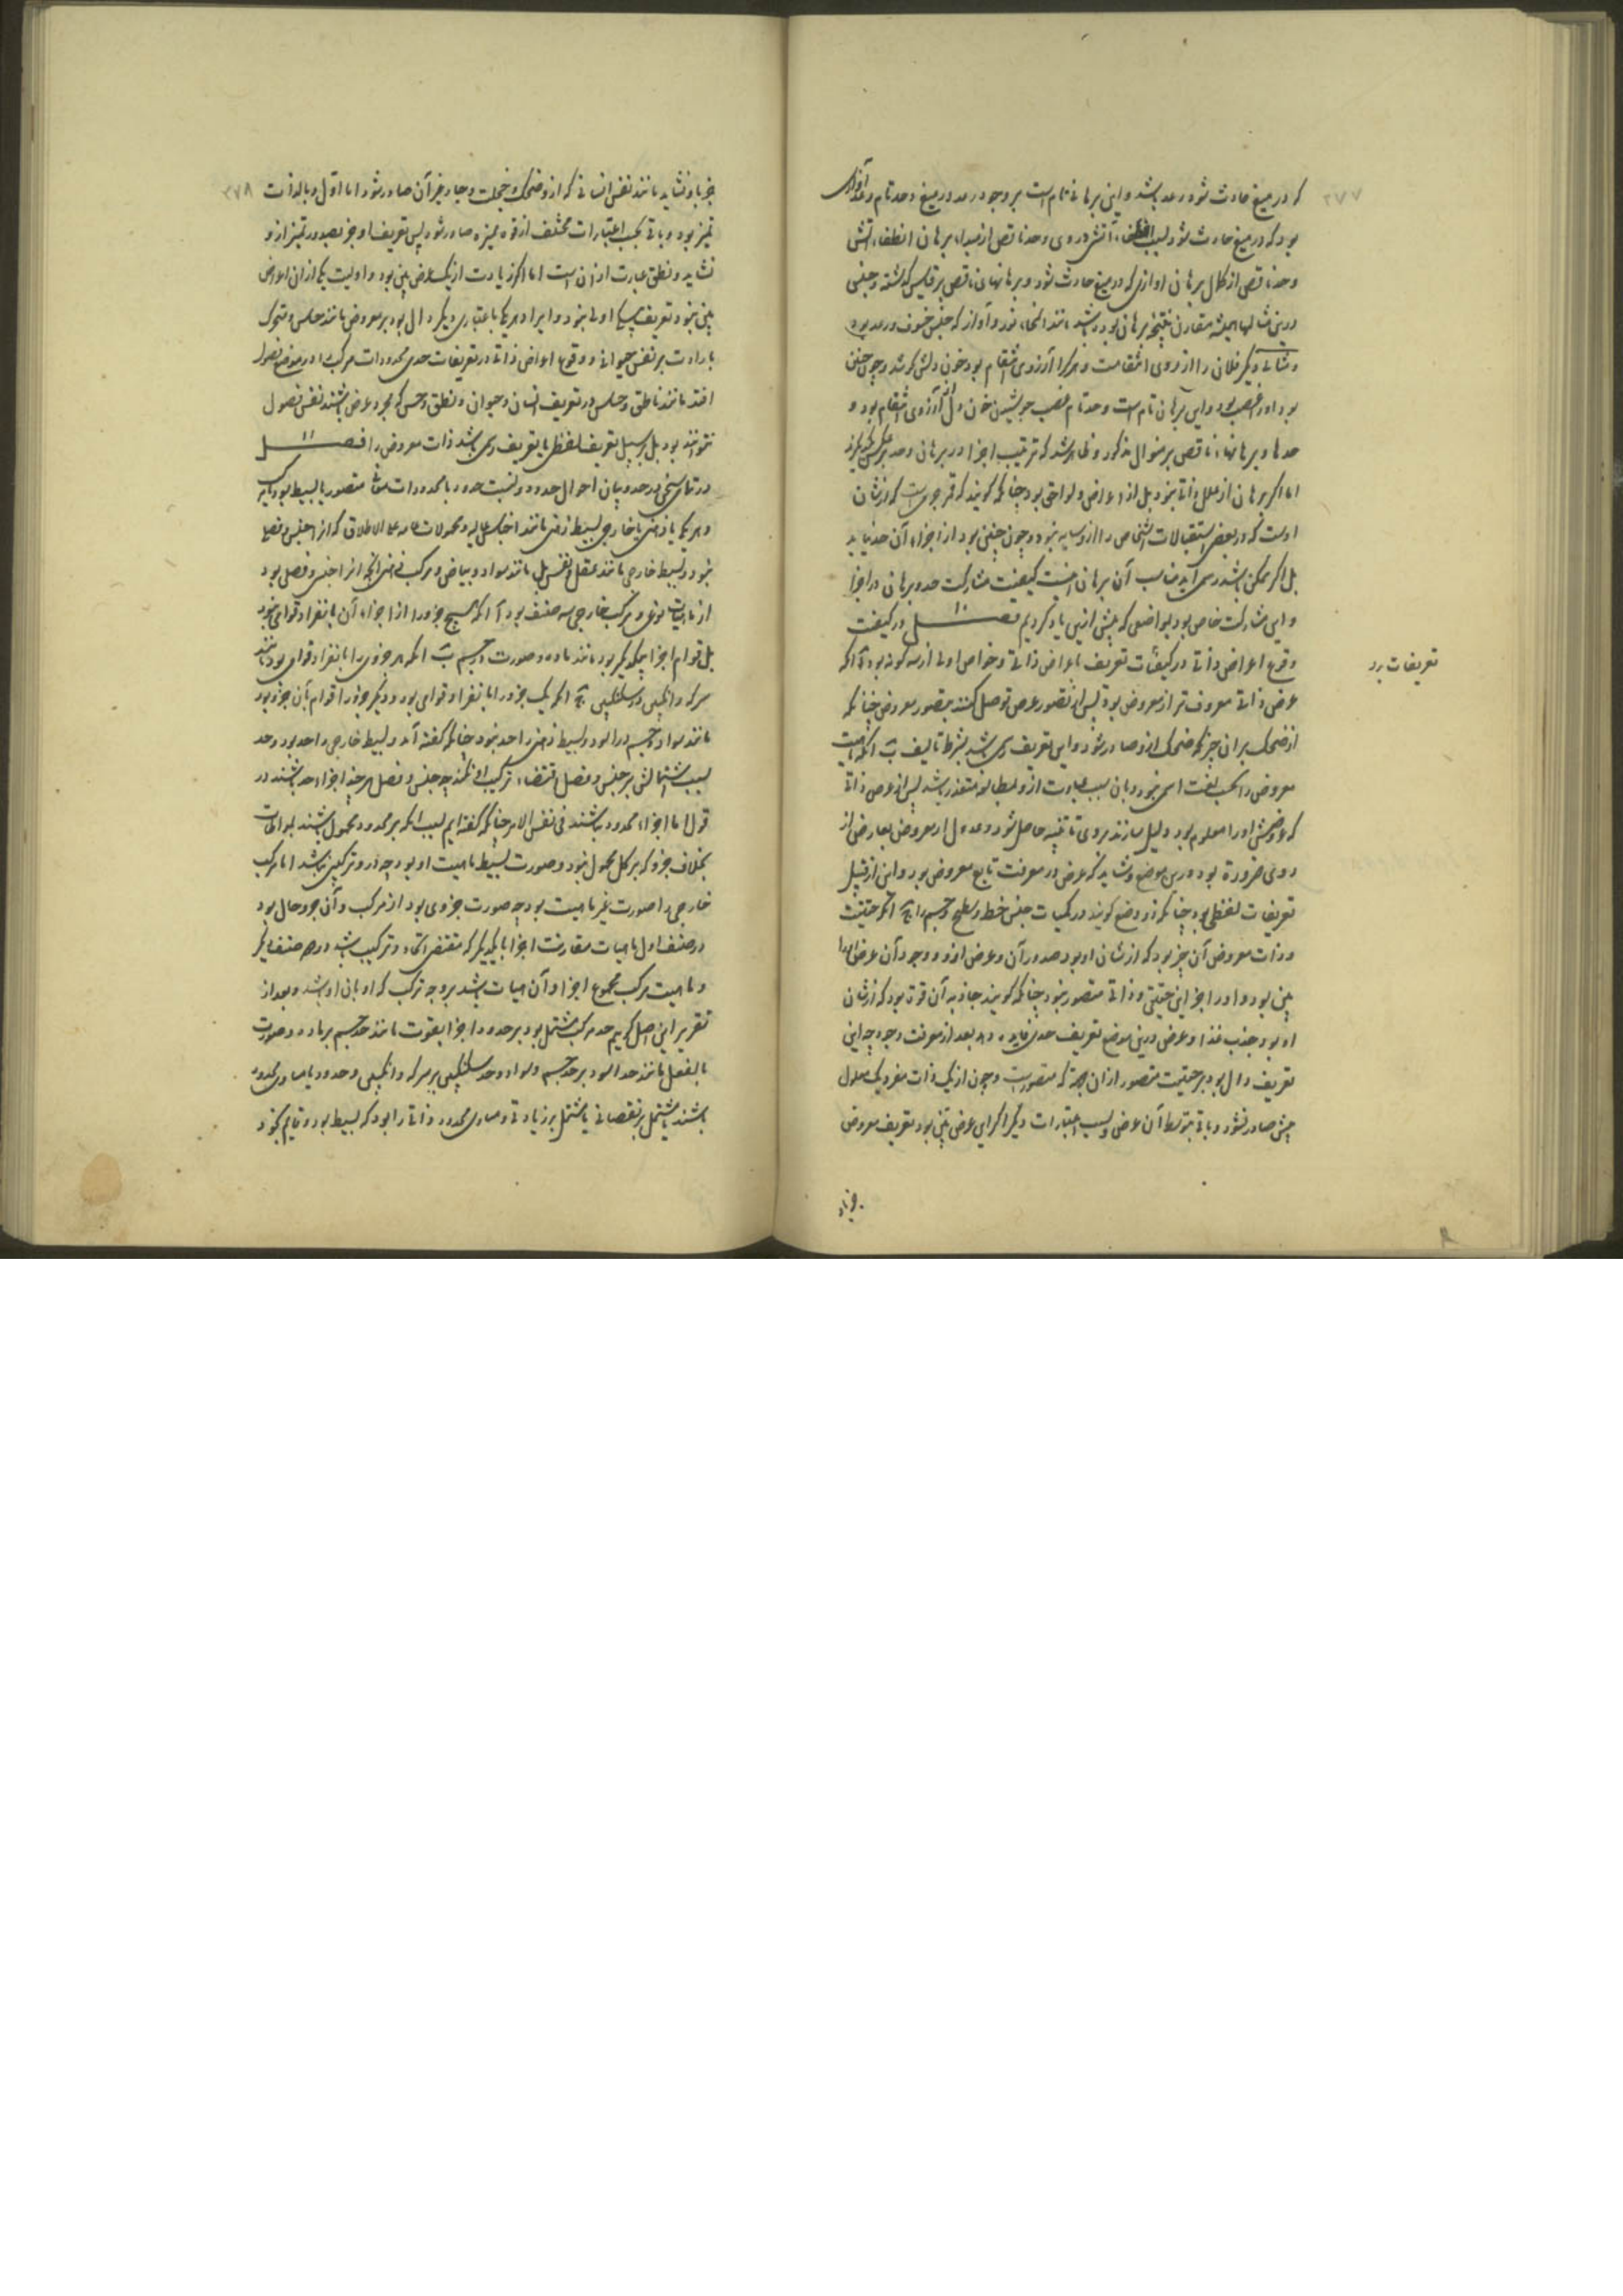 ۲۷۷
که در میغ حادث شود رعد باشد و این برهانی تام است بر وجود رعد در میغ و حد تام رعد آوازی
بود که در میغ حادث شود بسبب انطفاء آتش در وی و حد ناقص از مبداء برهان انطفاء آتش
و حد ناقص از کمال برهان اوازی که در میغ حادث شود و برهانهای ناقص بر قیاس گذشته و جنس
درین مثالها همیشه مقارن نتیجه برهان بود باشد مانند انمحاء نور و آواز که جنس خسوف و رعد بود
و مثالی دیگر فلان را ازروی انتقامست و هر کرا آرزوی انتقام بود خون دلش بجوشد و چون چنین
بود او را غضب بود و این برهان تام است و حد تام غضب جوشیدن خون دل از آرزوی انتقام بود و
حدها و برهانهاء ناقص بر منوال مذکور و ظاهر شد که ترتیب اجزا در برهان و حد بر عکس یکدیگرند
اما اگر برهان از علل ذاتی نبود بل از اعراض و لواحق بود چنانکه گویند که قمر جرمیست که از شان
اوست که در بعضی استقبالات اشخاص را ازو سایه نبود و چون چنین بود از اجزاء آن حد نیاید
بل اگر ممکن باشد رسمی آید مناسب آن برهان اینست کیفیت مشارکت حد و برهان در اجزا
و این مشارکت خاص بود بمواضعی که پیش ازین یاد کردیم فصل ۱۰ در کیفیت
وقوع اعراض ذاتی در کیفیات تعریف باعراض ذاتی و خواص اولی از سه گونه بود آ آنکه
تعریفات برد
عرض ذاتی معروف‌تر از معروض بود پس از تصور عرض توصل کنند بتصور معروض چنانکه
از ضحک بر ان چیز که ضحک ازو صادر شود و این تعریف رسمی باشد بشرط تألیف ب آنکه ماهیت
معروض را بحسب لغت اسمی نبود و بان سبب عبارت ازو بمطابقه متعذر باشد پس از عرض ذاتی
که عروضش او را معلوم بود دلیل سازند بر وی تا تنبیه حاصل شود و عدول از معروض بعارض از
روی ضرورة بود درین موضع و شاید که عرض در معرفت تابع معروض بود و این از قبیل
تعریفات لفظی بود چنانکه ذو وضع گویند در کمیات جنس خط و سطح و جسم را ج آنکه حقیقت
و ذات معروض آن چیز بود که از شان او بود صدور آن عرض ازو و وجود آن عرض او را
بین بود و او را جز این حقیقتی و ذاتی متصور نبود چنانکه گویند جاذبه آن قوة بود که از شان
او بود جذب غذا و عرض درین موضع تعریف حدی فایده دهد بعد از معرفت وجود چه این
تعریف دال بود بر حقیقت متصور ازان جهة که متصورست و چون از یک ذات مفرد یک معلول
بیش صادر نشود و باقی بتوسط آن عرض و بسبب اعتبارات دیگر اگر این عرض بین بود تعریف معروض
جز باو
۲۷۸
جز باو نشاید مانند نفس انسانی که ازو ضحک و خجلت و حیا و جز آن صادر شود اما اول و بالذات
تمیز بود و باقی بحسب اعتبارات مختلف از قوه ممیزه صادر شود پس تعریف او جز بصدور تمیز ازو
نشاید و نطق عبارت از آن است اما اگر زیادت از یک عرض بین بود و اولیت یکی از ان اعراض
بین نبود تعریف بیکی اولی نبود و ایراد هر یکی باعتباری دیگر دال بود بر معروض مانند حساس و متحرک
بارادت بر نفس حیوانی و وقوع اعراض ذاتی در تعریفات حدی محدودات مرکب را در موضع فصول
افتد مانند ناطق و حساس در تعریف انسان و حیوان و نطق و حس که مجرد عرض باشند نفس فصول
نتوانند بود بل بر سبیل تعریف لفظی یا تعریف رسمی باشد ذات معروض را فصل ۱۱
در تمامی سخن در حد و بیان احوال حدود و نسبت حدود با محدودات متصور یا بسیط بود یا مرکب
و هر یکی یا ذهنی یا خارجی بسیط ذهنی مانند اجناس عالیه و محمولات عامه علی الاطلاق که انرا جنس و فصلی
نبود و بسیط خارجی مانند عقل و نفس بل مانند سواد و بیاض و مرکب ذهنی آنچه انرا جنس و فصل بود
از ماهیات نوعی و مرکب خارجی سه صنف بود آ آنکه هیچ جزو را از اجزاء آن بانفراد قوامی نبود
بل قوام اجزا بیکدیگر بود مانند ماده و صورت در جسم ب آنکه هر جزوی را بانفراد قوامی بود مانند
سرکه و انگبین در سکنگبین ج آنکه یک جزو را بانفراد قوامی بود و دیگر جزو را قوام بآن جزو بود
مانند سواد و جسم در اسود و بسیط ذهنی را حد نبود چنانکه گفته آمد و بسیط خارجی را حد بود و حد
بسبب اشتمالش بر جنس و فصل اقتضاء ترکیب او نکند چه جنس و فصل هر چند اجزاء حد باشند در
قول اما اجزاء محدود نباشند فی نفس الامر چنانکه گفته‌ایم بسبب آنکه بر محدود محمول باشند بمواطات
بخلاف جزو که بر کل محمول نبود و صورت بسیط ماهیت او بود چه درو ترکیبی نباشد اما مرکب
خارجی را صورت غیر ماهیت بود چه صورت جزوی بود از مرکب و آن جزو حال بود
در صنف اول با هیأت مقارنت اجزا با یکدیگر که مقتضی اتحاد و ترکیب باشد در دو صنف دیگر
و ماهیت مرکب مجموع اجزا و آن هیأت باشد بر وجه ترکب که او بان او باشد و بعد از
تقریر این اصل گوییم حد مرکب مشتمل بود بر حدود اجزا بقوت مانند حد جسم بر ماده و صورت
یا بالفعل مانند حد اسود بر حد جسم و سواد و حد سکنگبین بر سرکه و انگبین و حدود یا مساوی محدود
باشند یا مشتمل بر نقصانی یا مشتمل بر زیادتی و مساوی محدود ذاتی را بود که بسیط بود و قایم بخود